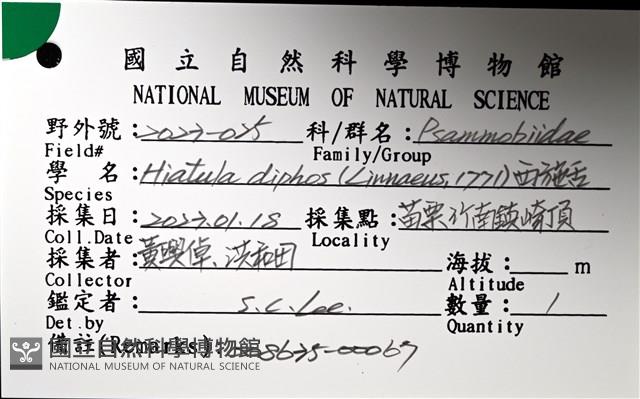 國立自然科學博物館
NATIONAL MUSEUM OF NATURAL SCIENCE
野外號：2023-025 科/群名：Psammobiidae
Field# Family/Group
學 名：Hiatula diphos (Linnaeus, 1771) 西施舌
Species
採集日：2023.01.18 採集點：苗栗竹南鎮崎頂
Coll.Date Locality
採集者：黃興倬、洪和田 海拔： m
Collector Altitude
鑑定者：S.C. Lee. 數量：1
Det.by Quantity
備註(Remarks)
國立自然科學博物館
NATIONAL MUSEUM OF NATURAL SCIENCE